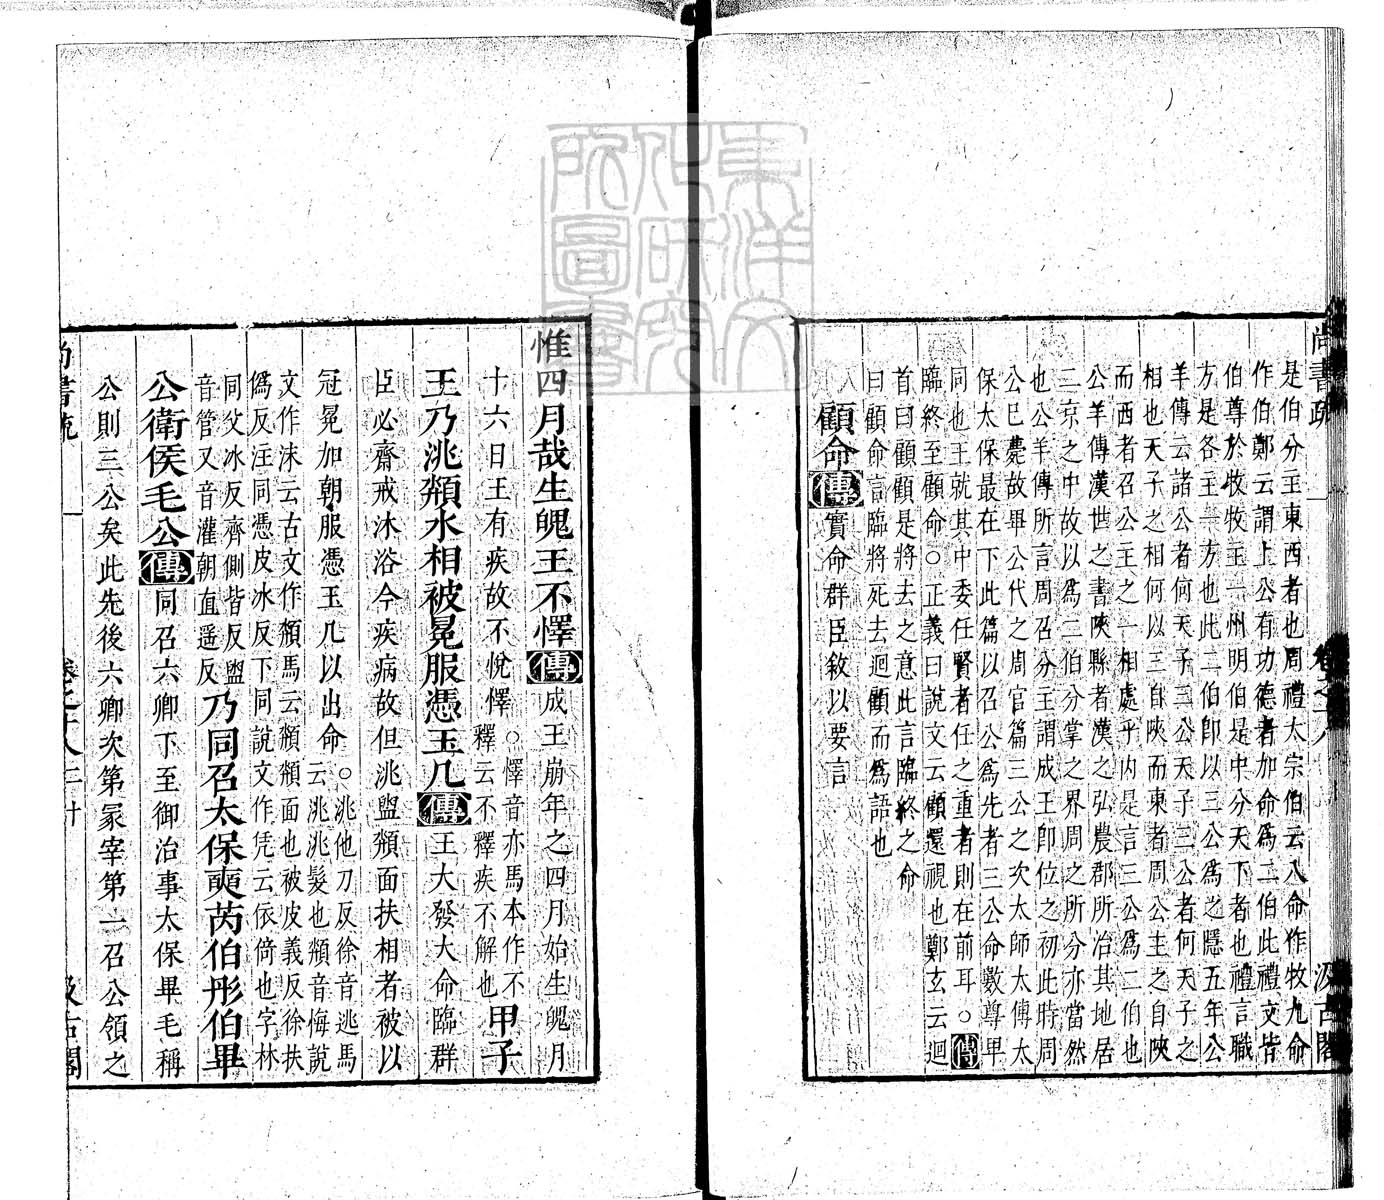 尚書疏 卷之十八 汲古閣
是伯分主東西者也周禮大宗伯云八命作牧九命
作伯鄭云謂上公有功德者加命爲二伯此禮文皆
伯尊於牧牧主一州明伯是中分天下者也禮言職
方是各主一方也此二伯卽以三公爲之隱五年公
羊傳云諸公者何天子三公天子三公者何天子之
相也天子之相何以三自陝而東者周公主之自陝
而西者召公主之一相處乎内是言三公爲二伯也
公羊傳漢世之書陝縣者漢之弘農郡所治其地居
二京之中故以爲二伯分掌之界周之所分亦當然
也公羊傳所言周召分主謂成王卽位之初此時周
公已薨故畢公代之周官篇三公之次太師太傅太
保太保最在下此篇以召公爲先者三公命數尊卑
同也王就其中委任賢者任之重者則在前耳○傳
臨終至顧命○正義曰說文云顧還視也鄭玄云迴
首曰顧顧是將去之意此言臨終之命
曰顧命言臨將死去迴顧而爲語也
顧命傳實命群臣敘以要言
惟四月哉生魄王不懌傳成王崩年之四月始生魄月
十六日王有疾故不悅懌○懌音亦馬本作不
釋云不釋疾不解也甲子
王乃洮頮水相被冕服憑玉几傳王大發大命臨群
臣必齋戒沐浴今疾病故但洮盥頮面扶相者被以
冠冕加朝服憑玉几以出命○洮他刀反徐音逃馬
云洮洮髮也頮音悔說
文作沬云古文作頮馬云頮頮面也被皮義反徐扶
僞反注同憑皮冰反下同說文作凭云依倚也字林
同父冰反齊側皆反盥
音管又音灌朝直遥反乃同召太保奭芮伯彤伯畢
公衛侯毛公傳同召六卿下至御治事太保畢毛稱
公則三公矣此先後六卿次第冢宰第一召公領之
尚書疏 卷之十八 汲古閣
東洋文化研究所圖書